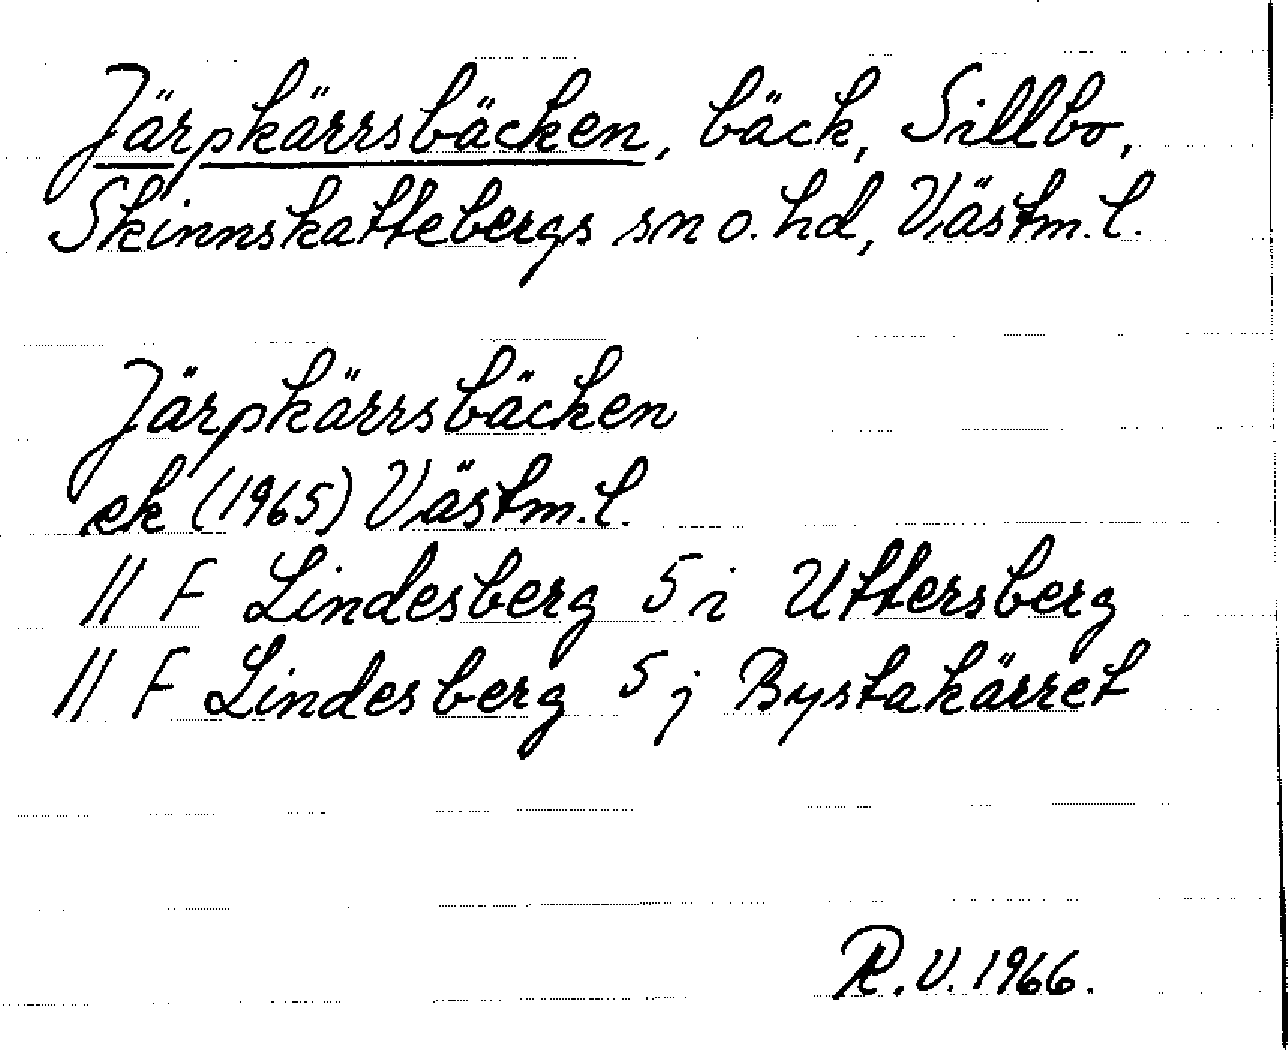 Järpkärrsbäcken, bäck, Sillbo,
Skinnskattebergs sn o. hd, Västm. l.
Järpkärrsbäcken
ek (1965) Västm. l.
11 F Lindesberg 5 i Uttersberg
11 F Lindesberg 5 j Bystakärret
R. V. 1966.